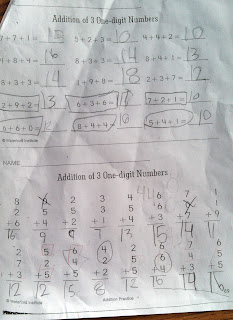 Addition of 3 One-digit Numbers
7+7+1= 15 5+2+3= 10 4+4+2= 10
4+8+4= 16 8+3+3= 14 8+4+1= 13
8+3+3= 14 1+9+8= 18 2+3+7= 12
2+9+2= 13 6+3+6= 7+2+1= 10
6+6+0= 12 8+4+4= 16 5+4+1= 10
NAME
Addition of 3 One-digit Numbers
8 6 2 3 4 6 7 1
2 5 5 3 5 6 1
+6 +4 +2 +1 +4 +3 +9
16 9 13 15 14 11
2 5 6 4 2 6 7 6
7 2 4 2 5 6 4 5
+3 +5 +5 +2 +5 +4 +3 +5
12 12 15 8 12 16 14 16
Addition Practice